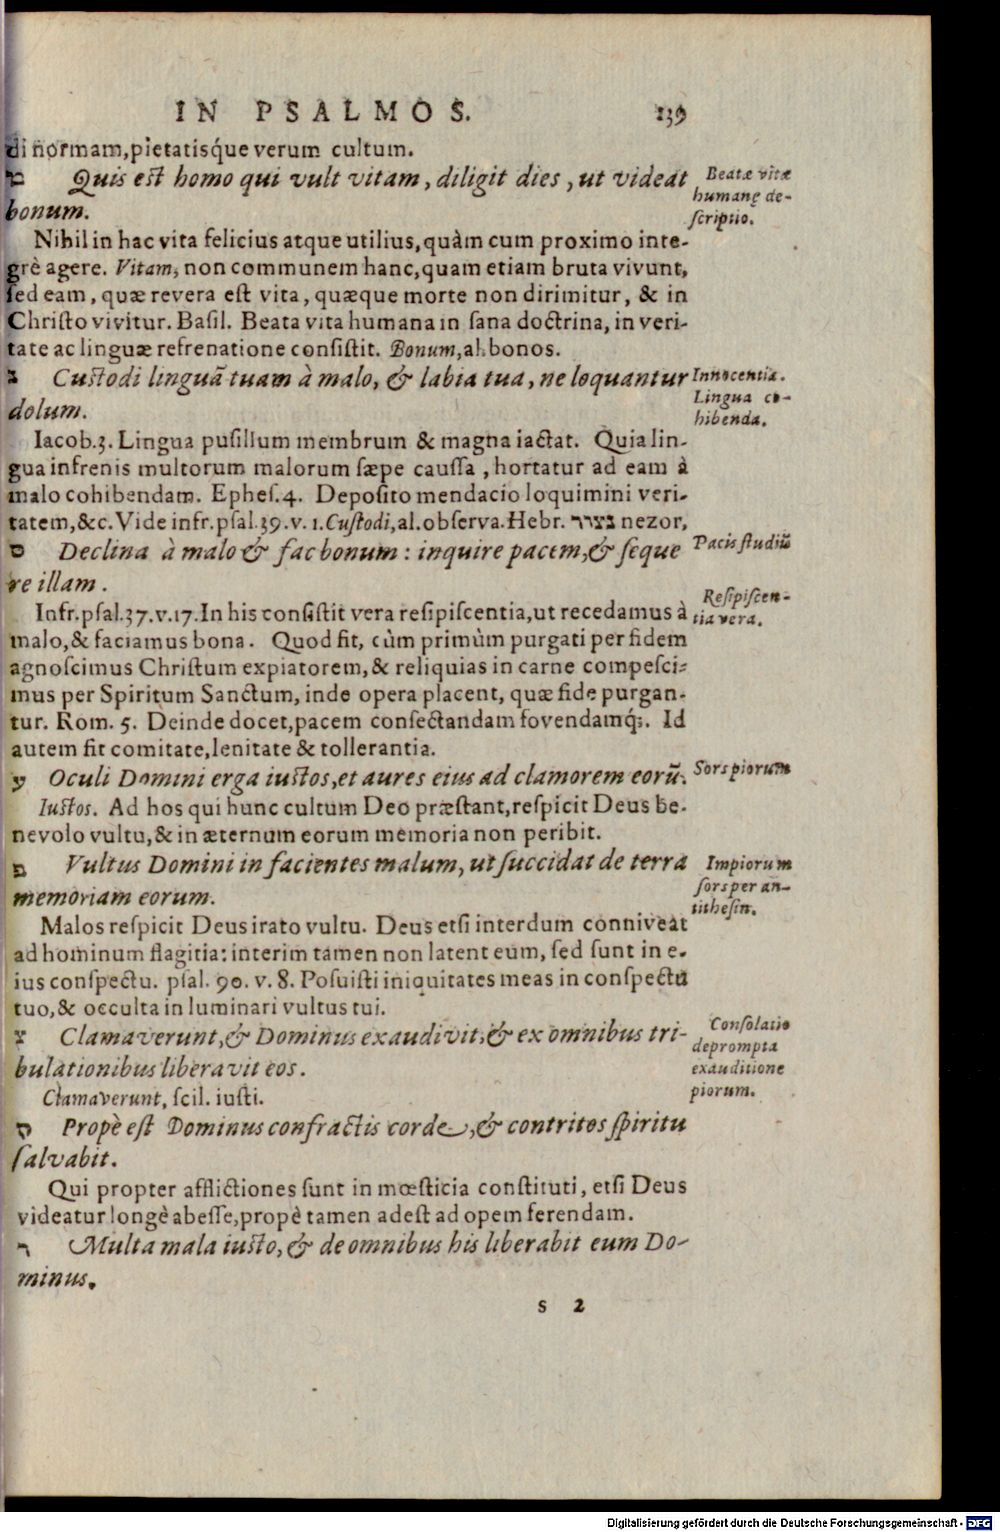 IN PSALMOS. 139
di normam, pietatisq́ue verum cultum.
מ Quis est homo qui vult vitam, diligit dies, ut videat
bonum.
Beatæ vitæ
humanę de-
scriptio.
Nihil in hac vita felicius atque utilius, quàm cum proximo inte-
grè agere. Vitam, non communem hanc, quam etiam bruta vivunt,
sed eam, quæ revera est vita, quæque morte non dirimitur, & in
Christo vivitur. Basil. Beata vita humana in sana doctrina, in veri-
tate ac linguæ refrenatione consistit. Bonum, al. bonos.
נ Custodi linguã tuam à malo, & labia tua, ne loquantur
dolum.
Innocentia.
Lingua co-
hibenda.
Iacob. 3. Lingua pusillum membrum & magna iactat. Quia lin-
gua infrenis multorum malorum sæpe caussa, hortatur ad eam à
malo cohibendam. Ephes. 4. Deposito mendacio loquimini veri-
tatem, &c. Vide infr. psal. 39. v. 1. Custodi, al. observa. Hebr. נצור nezor,
ס Declina à malo & fac bonum: inquire pacem, & seque
re illam.
Pacis studiũ
Infr. psal. 37. v. 17. In his consistit vera resipiscentia, ut recedamus à
malo, & faciamus bona. Quod fit, cùm primùm purgati per fidem
agnoscimus Christum expiatorem, & reliquias in carne compesci-
mus per Spiritum Sanctum, inde opera placent, quæ fide purgan-
tur. Rom. 5. Deinde docet, pacem consectandam fovendamq́;. Id
autem fit comitate, lenitate & tollerantia.
Resipiscen-
tia vera.
ע Oculi Domini erga iustos, et aures eius ad clamorem eorũ.
Sors piorum
Iustos. Ad hos qui hunc cultum Deo præstant, respicit Deus be-
nevolo vultu, & in æternum eorum memoria non peribit.
פ Vultus Domini in facientes malum, ut succidat de terra
memoriam eorum.
Impiorum
sors per an-
tithesin.
Malos respicit Deus irato vultu. Deus etsi interdum conniveat
ad hominum flagitia: interim tamen non latent eum, sed sunt in e-
ius conspectu. psal. 90. v. 8. Posuisti iniquitates meas in conspectu
tuo, & occulta in luminari vultus tui.
צ Clamaverunt, & Dominus exaudivit, & ex omnibus tri-
bulationibus liberavit eos.
Consolatio
deprompta
exauditione
piorum.
Clamaverunt, scil. iusti.
ק Propè est Dominus confractis corde, & contritos spiritu
salvabit.
Qui propter afflictiones sunt in mœsticia constituti, etsi Deus
videatur longè abesse, propè tamen adest ad opem ferendam.
ר Multa mala iusto, & de omnibus his liberabit eum Do-
minus.
S 2
Digitalisierung gefördert durch die Deutsche Forschungsgemeinschaft - DFG